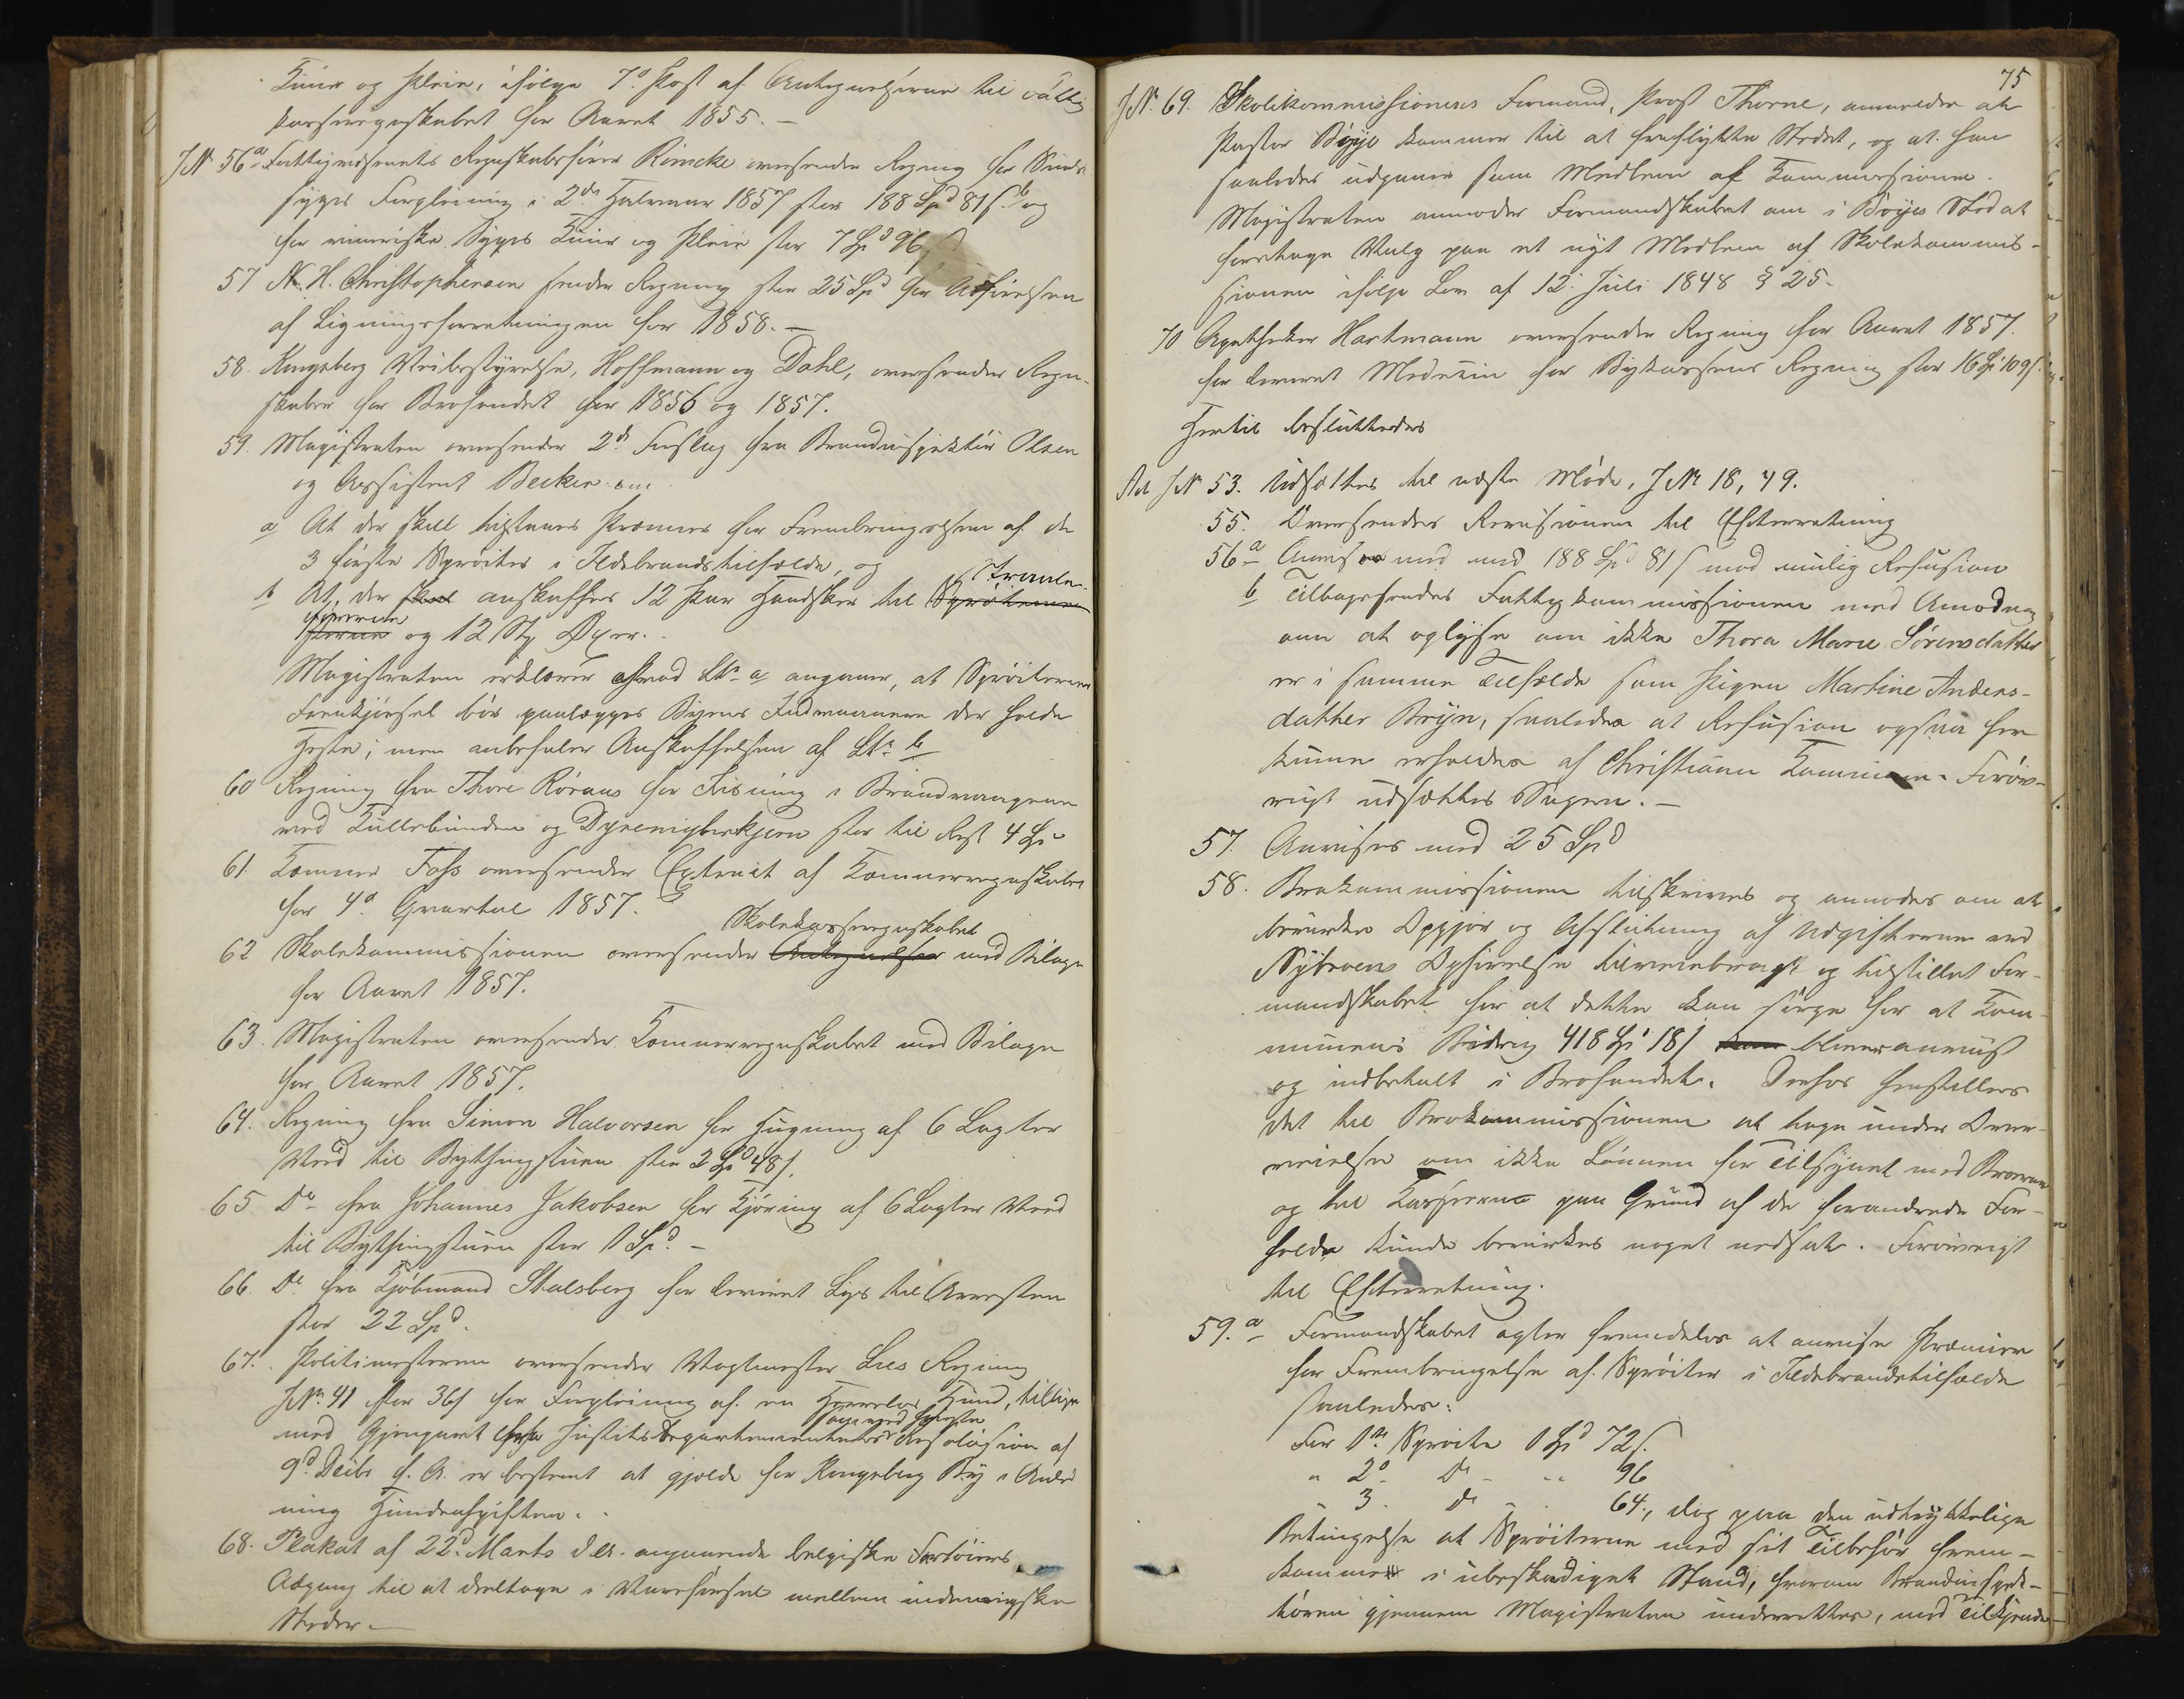 Kuur og Pleie, ifølge 7de Post af Antegnelserne til Fattig-
kasseregnskabet for Aaret 1855.-
J№ 56a Fattigvæsenets Regnskabsfører Rømcke oversender Regning for Sinds-
syges Forpleining i 2det Halvaar 1857 stor 188 Spd 81 s. b og
for veneriske Syges Kuur og Pleie stor 7 Spd 96 s
57 N. H. Christophersen sender Regning stor 25 Spd for Udførelsen
af Ligningsforretningen for 1858.-
58. Kongsberg Veibestyrelse, Hoffmann og Dahl, oversender Regn-
skaber for Brofondet for 1856 og 1857.
59. Magistraten oversender 2de Forslag fra Brandinspektør Olsen
og Assistent Becker om
a At der skal tilstaaes Præmier for Frembringelsen af de
3 første Sprøiter i Ildebrandstilfælde, og
b At der skal anskaffes 12 Par Handsker til Sprøiterne Straale-
førerne og 12 Stk Øxer.
Magistraten erklærer hvad Ltr. a angaaer, at Sprøiternes
Fremkjørsel bør paalægges Byens Indvaanere der holde
Heste; men anbefaler Anskaffelsen af Ltr. b
60 Regning fra Thore Røraas for Risning i Brandvangene
ved Kullebunden og Dyremyberkjern stor til Rest 4 Spd
61. Kæmner Foss oversender Extrait af Kæmnerregnskabet
for 4de Qvartal 1857.
Skolekasseregnskabet
62 Skolekommissionen oversender Antegnelser med Bilage
for Aaret 1857.
63. Magistraten oversender Kæmnerregnskabet med Bilage
for Aaret 1857.
64. Regning fra Simon Halvorsen for Hugning af 6 Lagter
Ved til Bythingstuen stor 2 Spd 48 s.
65 Do fra Johannes Jakobsen for Kjøring af 6 Lagter Ved
til Bythingstuen stor 1 Spd.-
66. Do fra Kjøbmand Stalsberg for leveret Lys til Arresten
stor 22 Spd.
67. Politimesteren oversender Vagtmester Lies Regning
J№ 41 stor 36 s for Forpleining af en herreløs Hund, tillige
med Gjenpart Justitsdepartementets Resolution af
9d Decbr f. A. er bestemt at gjælde for Kongsberg By i Anled-
ning Hundeafgiften.
68. Plakat af 22d Marts d. A. angaaende belgiske Fartøiers
Adgang til at deeltage i Vareførsel mellem indenrigske
Steder.-
75
J№ 69. Skolekommissionens Formand, Provst Thorne, anmelder at
Pastor Böyje kommer til at fraflytte Stedet, og at han
saaledes udgaaer som Medlem af Kommissionen.
Magistraten anmoder Formandskabet om i Böyes Sted at
foretage Valg paa et nyt Medlem af Skolekommis-
sionen ifølge Lov af 12. Juli 1848 § 25.
70 Apotheker Hartmann oversender Regning for Aaret 1857.
for leveret Medicin for Bykassens Regning stor 16 Spd 109 s.
Hertil besluttedes
Ad J№ 53. Udsættes til næste Møde, J№ 18, 49.
55. Oversendes Revisionen til Efterretning
56a Anvises med 188 Spd 81 s mod mulig Refusion
b Tilbagesendes Fattigkommissionen med Anmodning
om at oplyse om ikke Thora Marie Sørensdatter
er i samme Tilfælde som Pigen Martine Anders-
datter Bryn, saaledes at Refusion ogsaa her
kunne erholdes af Christiania Kommune. Forøv-
rigt udsættes Sagen.-
57. Anvises med 25 Spd
58. Brokommissionen tilskrives og anmodes om at
bevirke Opgjør og Afslutning af Udgifterne ved
Nybroens Opførelse tilveiebragt og tilstillet For-
mandskabet for at dette kan sørge for at Kom-
munens Bidrag 418 Spd 18 s kan bliver anviist
og indbetalt i Brofondet. Derhos henstilles
det til Brokommissionen at tage under Over-
veielse om ikke Lønnen for Tilsynet med Broerne
og til Kassereren paa Grund af de forandrede For-
holde kunde bevirkes noget nedsat. Forøvrigt
til Efterretning.
59. a Formandskabet agter fremdeles at anvise Præmier
for Frembringelse af Sprøiter i Ildebrandstilfælde
saaledes:
For 1ste Sprøite 1 Spd 72 s.
" 2de Do - " 96
3. Do - 64, dog paa den udtrykkelige
Betingelse at Sprøiterne med sit Tilbehør frem-
kommer i ubeskadiget Stand, hvorom Brandinspek-
tøren gjennem Magistraten underrettes, med Tilkjende-